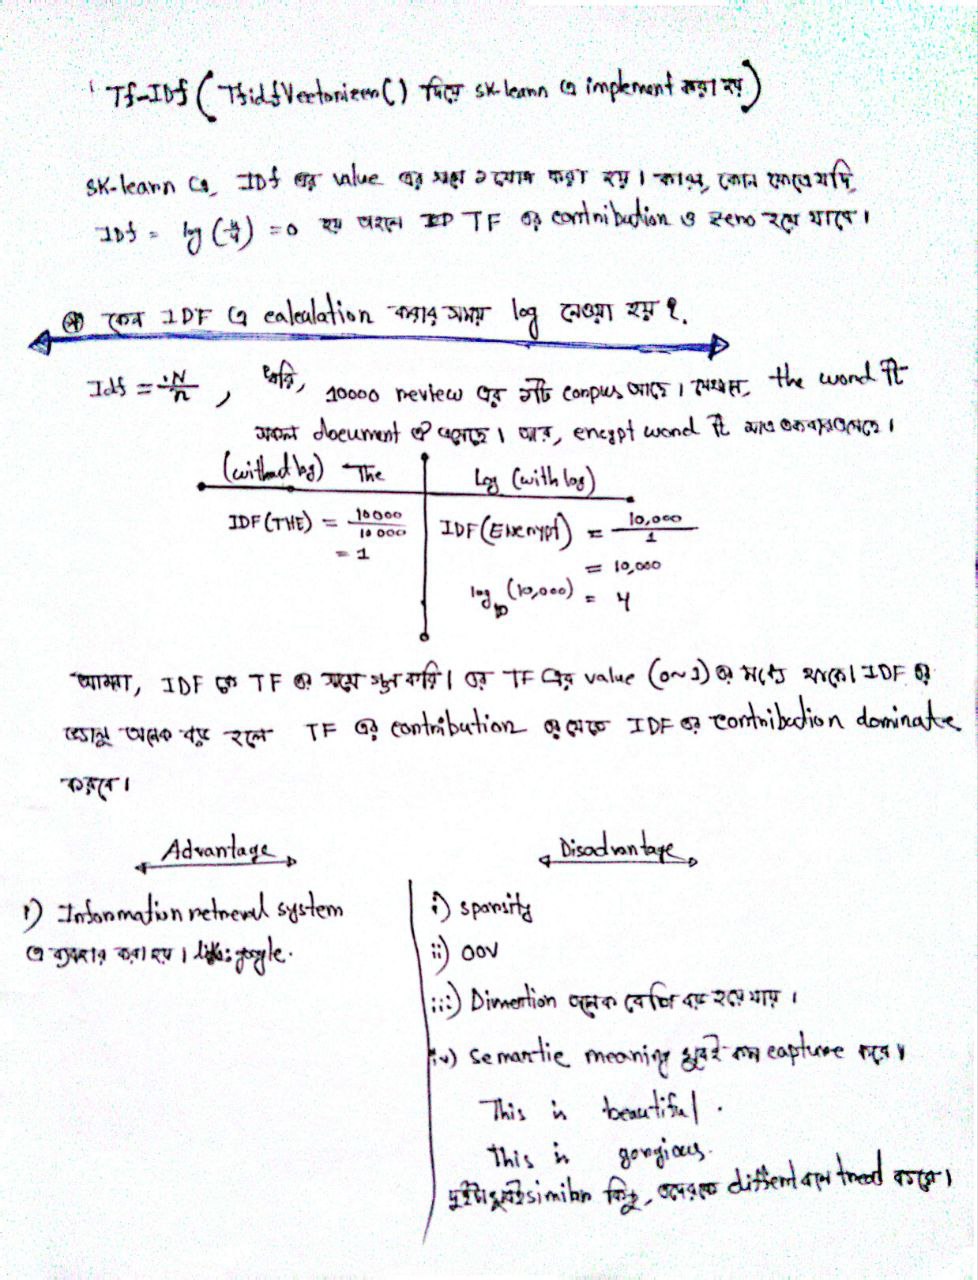 Tf-IDf (TfidfVectorizer() দিয়ে sk-learn এ implement করা হয়)
sk-learn এ, IDf এর value এর সঙ্গে ১ যোগ করা হয়। কারণ, কোন ক্ষেত্রে যদি
IDf = log (4/4) = 0 হয় তাহলে TF এর contribution ও zero হয়ে যাবে।
* কেন IDF এ calculation করার সময় log নেওয়া হয়?
Idf = N/n , ধরি, 10000 review এর ১টি corpus আছে। যেখানে, the word টি
সকল document এ এসেছে। আর, encypt word টি মাত্র একবার এসেছে।
(without log) The Log (with log)
IDF(THE) = 10000/10000 IDF(Encrypt) = 10,000/1
= 1 = 10,000
log10 (10,000) = 4
আমরা, IDF কে TF এর সাথে গুন করি। TF এর value (0~1) এর মধ্যে থাকে। IDF এর
ভ্যালু অনেক বড় হলে TF এর contribution এর থেকে IDF এর contribution dominate
করবে।
Advantage Disadvantage
i) Information retrieval system
এ ব্যবহার করা হয়। like: google.
i) sparsity
ii) OOV
iii) Dimention অনেক বেশি বড় হয়ে যায়।
iv) semantic meaning খুবই কম capture করে।
This is beautiful.
This is gorgious.
দুইটা খুবই similar কিন্তু, different treat করবে।